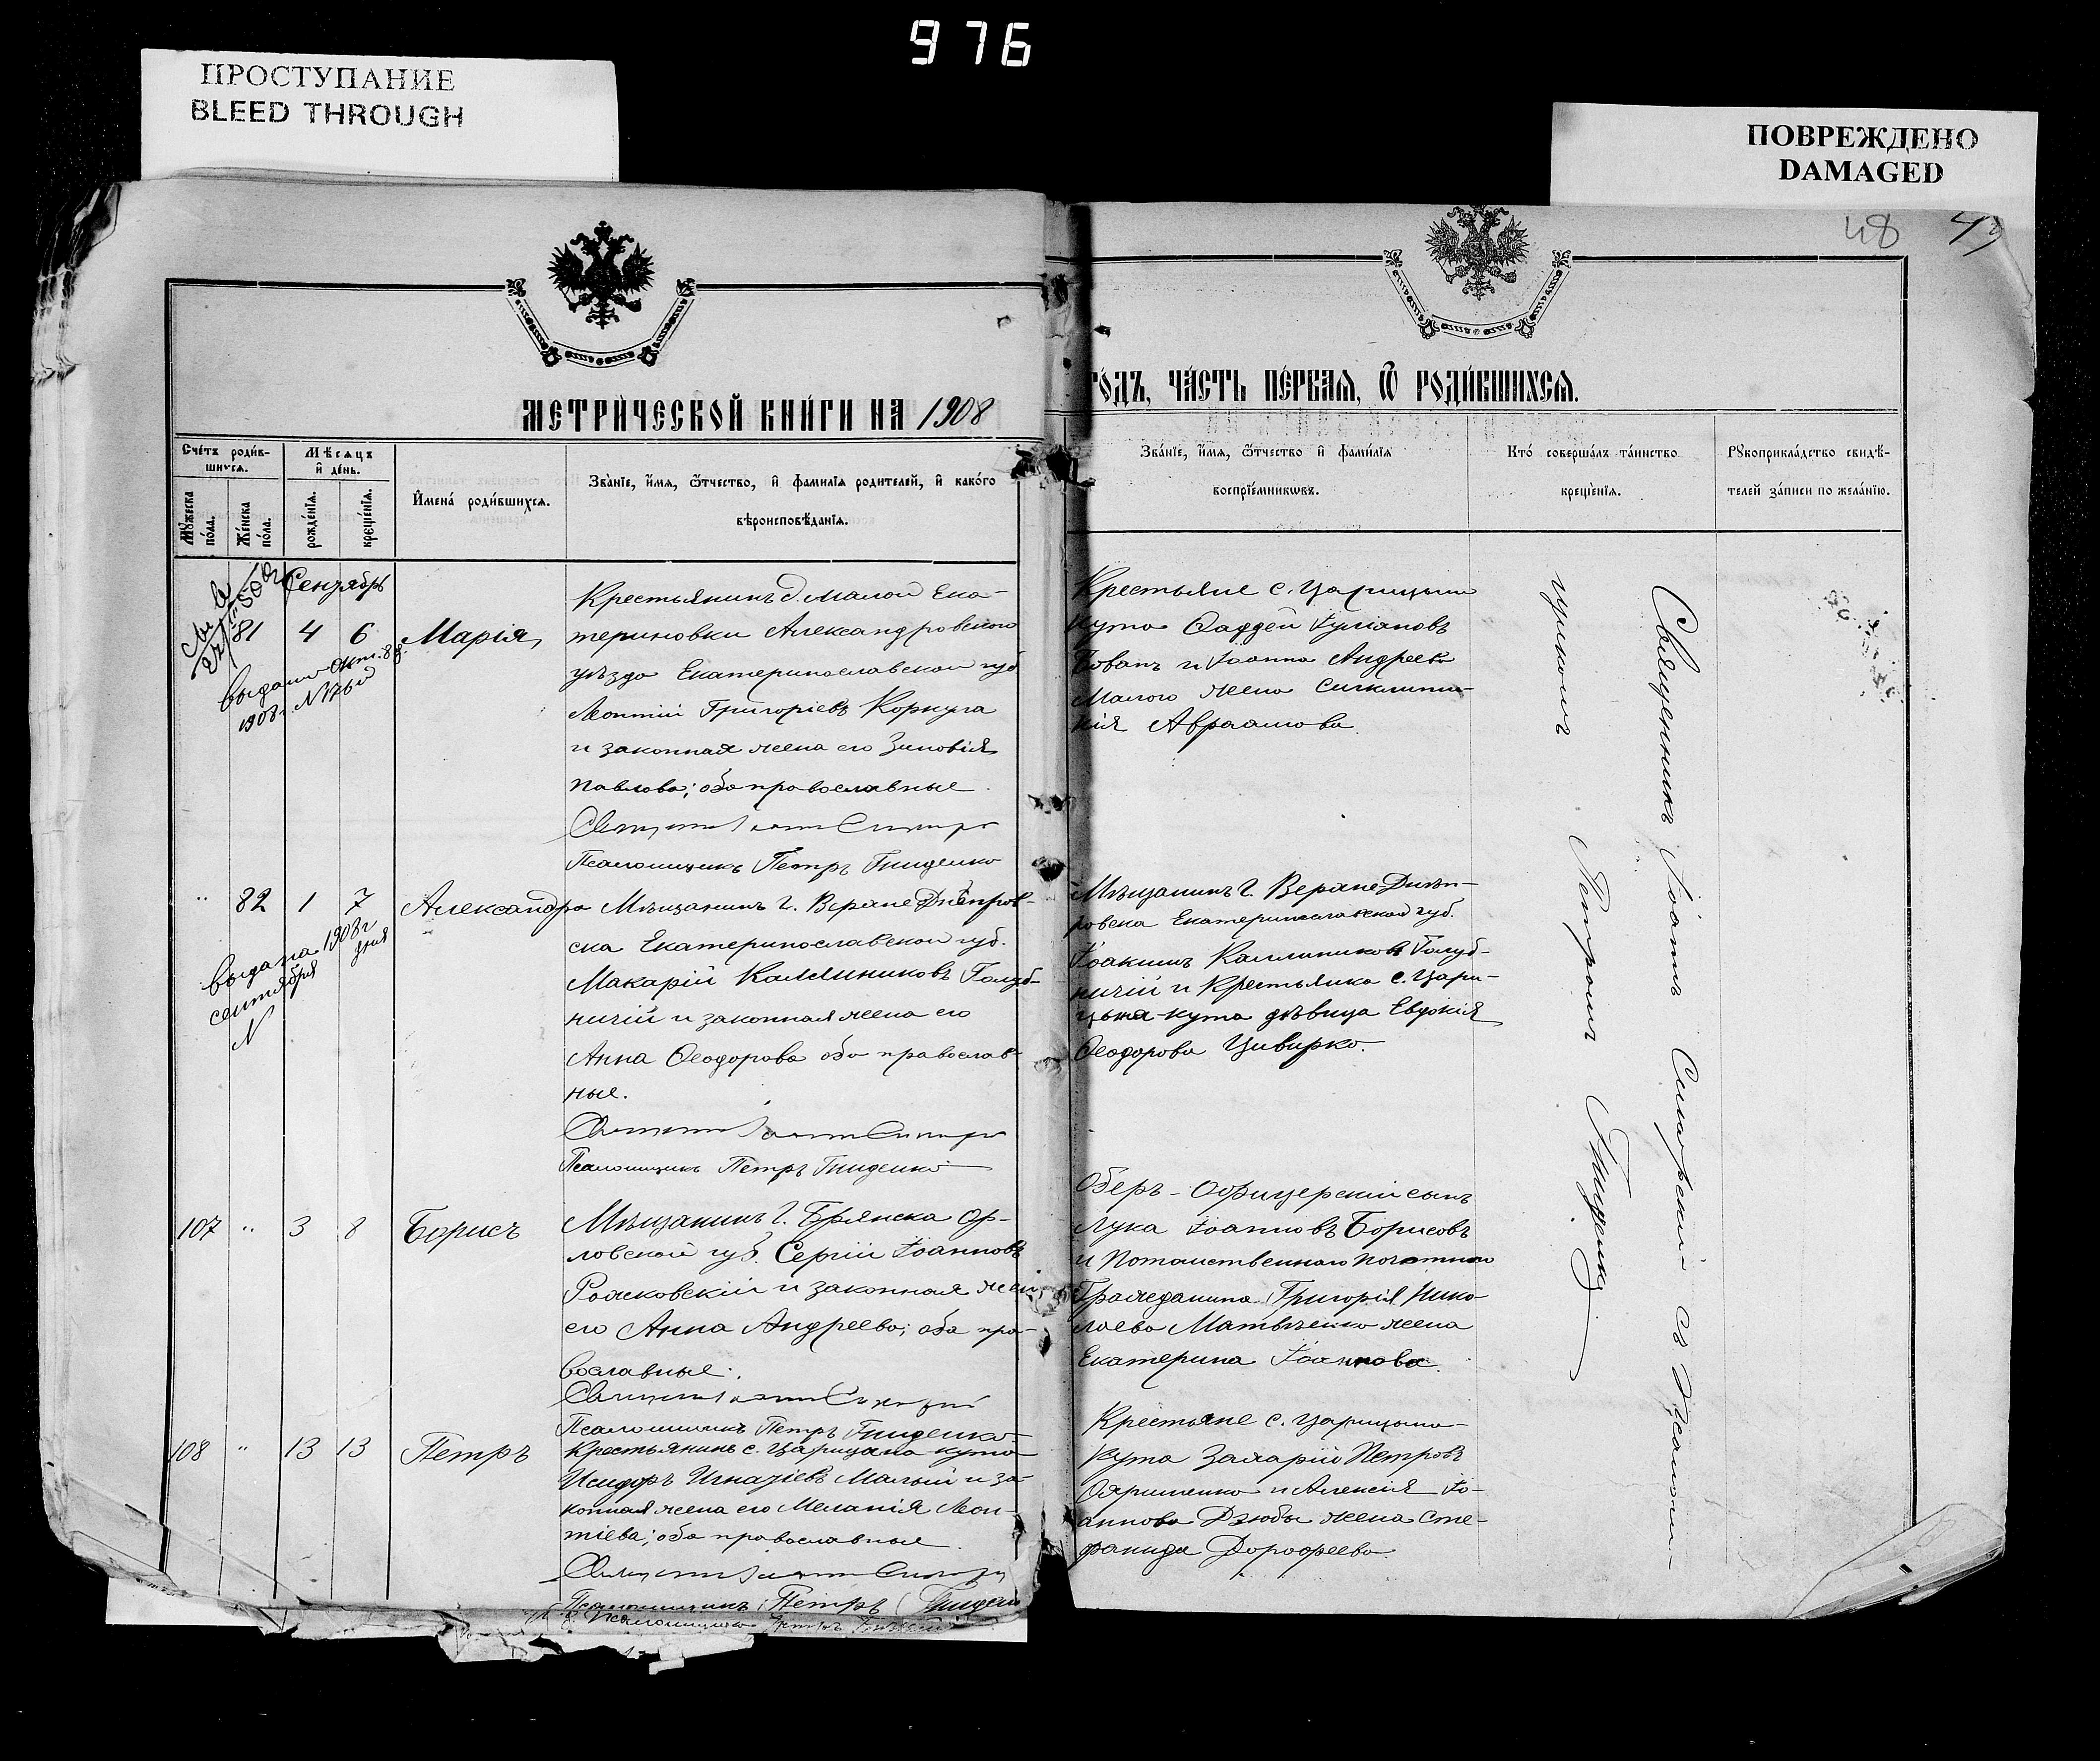 976
ПРОСТУПАНИЕ
BLEED THROUGH
ПОВРЕЖДЕНО
DAMAGED
48
МЕТРИЧЕСКОЙ КНИГИ НА 1908
ГОДЪ, ЧАСТЬ ПЕРВАЯ, Ѿ РОДИВШИХСЯ.
Счетъ родив-
шихся.
Мужеска пола.
Женска пола.
Мѣсяцъ
и день.
рожденія.
крещенія.
Имена родившихся.
Званіе, имя, ѿтчество, и фамилія родителей, и какого
вѣроисповѣданія.
Званіе, имя, ѿтчество и фамилія
воспріемниковъ.
Кто совершалъ таинство
крещенія.
Рукоприкладство свидѣ-
телей записи по желанію.
Сентябрь
81 4 6 Марія
выдано Окт. 8 д.
1908 г. N
Крестьянинъ д. Малой Ека-
териновки Александровского
уѣзда Екатеринославской губ
Леонтій Григоріевъ Корнуга
и законная жена его Зиновія
Павлова; оба православные.
Псаломщикъ Петръ Гниденко
Крестьяне с. Царицына
Кута Фаддей
Іоанна Андреева
Малого жена Синклити-
кія Авраамова.
" 82 1 7 Александра
выдана 1908 г
сентября дня
N
Мѣщанинъ г. Верхнеднѣпров-
ска Екатеринославской губ.
Макарій Каллиниковъ Голуб-
ничій и законная жена его
Анна Ѳеодорова оба православ-
ные.
Псаломщикъ Петръ Гниденко
Мѣщанинъ г. Верхнеднѣп-
ровска Екатеринославской губ.
Іоакимъ Каллиниковъ Голуб-
ничій и Крестьянка с. Цари-
цына-кута дѣвица Евдокія
Ѳеодорова Цивирко.
107 " 3 8 Борисъ
Мѣщанинъ г. Брянска Ор-
ловской губ. Сергій Іоанновъ
Рожковскій и законная жена
его Анна Андреева; оба пра-
вославные.
Псаломщикъ Петръ Гниденко
Оберъ-Офицерскій сынъ
Лука Іоанновъ Борисовъ
и Потомственнаго почетнаго
Гражданина Григорія Нико-
лаева Матвѣенко жена
Екатерина Іоаннова.
108 " 13 13 Петръ
Крестьянинъ с. Царицына кута
Исидоръ Игнатіевъ Малый и за-
конная жена его Меланія Леон-
тіева; оба православные.
Псаломщикъ Петръ Гниденко
Крестьяне с. Царицына-
Кута Захарій Петровъ
и Алексія Іо-
аннова Дзюбы жена Сте-
фанида Дорофеева.
Священникъ Іоаннъ Синарскій съ Псалом-
щикомъ Петромъ Гниденко
Псаломщикъ Петръ